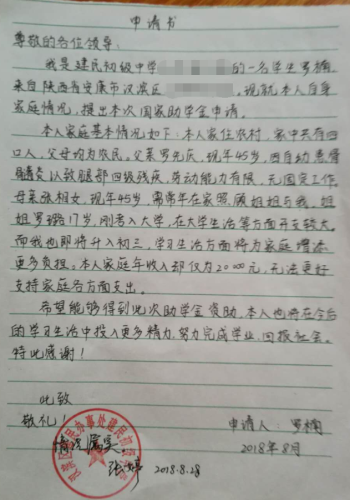 申请书
尊敬的各位领导:
我是建民初级中学 的一名学生罗楠,
来自陕西省安康市汉滨区 。现就本人自身
家庭情况,提出本次国家助学金申请。
本人家庭基本情况如下:本人家住农村,家中共有四
口人,父母均为农民。父亲罗元庆,现年45岁,因自幼患骨
髓炎以致腿部四级残疾,劳动能力有限,无固定工作。
母亲张相女,现年45岁,常常年在家照顾姐姐与我。姐
姐罗璐17岁,刚考入大学,在大学生活等方面开支较大。
而我也即将升入初三,学习生活方面将为家庭增添
更多负担。本人家庭年收入却仅为20000元,无法更好
支持家庭各方面支出。
希望能够得到此次助学金资助,本人也将在今后
的学习生活中投入更多精力,努力完成学业,回报社会。
特此感谢!
此致
敬礼!
申请人:罗楠
情况属实。
2018年8月
2018.8.28